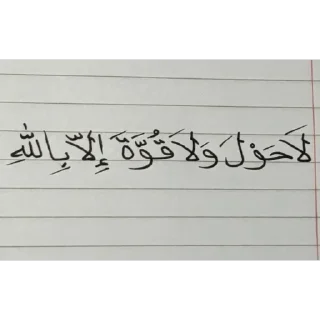 لَاحَوْلَ وَلَا قُوَّةَ إِلَّا بِاللَّهِ